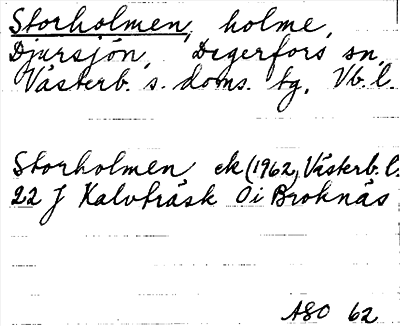 Storholmen, holme,
Djursjön, Degerfors sn,
Västerb. s. doms. tg, Vb. l.
Storholmen ek (1962, Västerb. l.
22 J Kalvträsk Ö i Broknäs
ASO 62